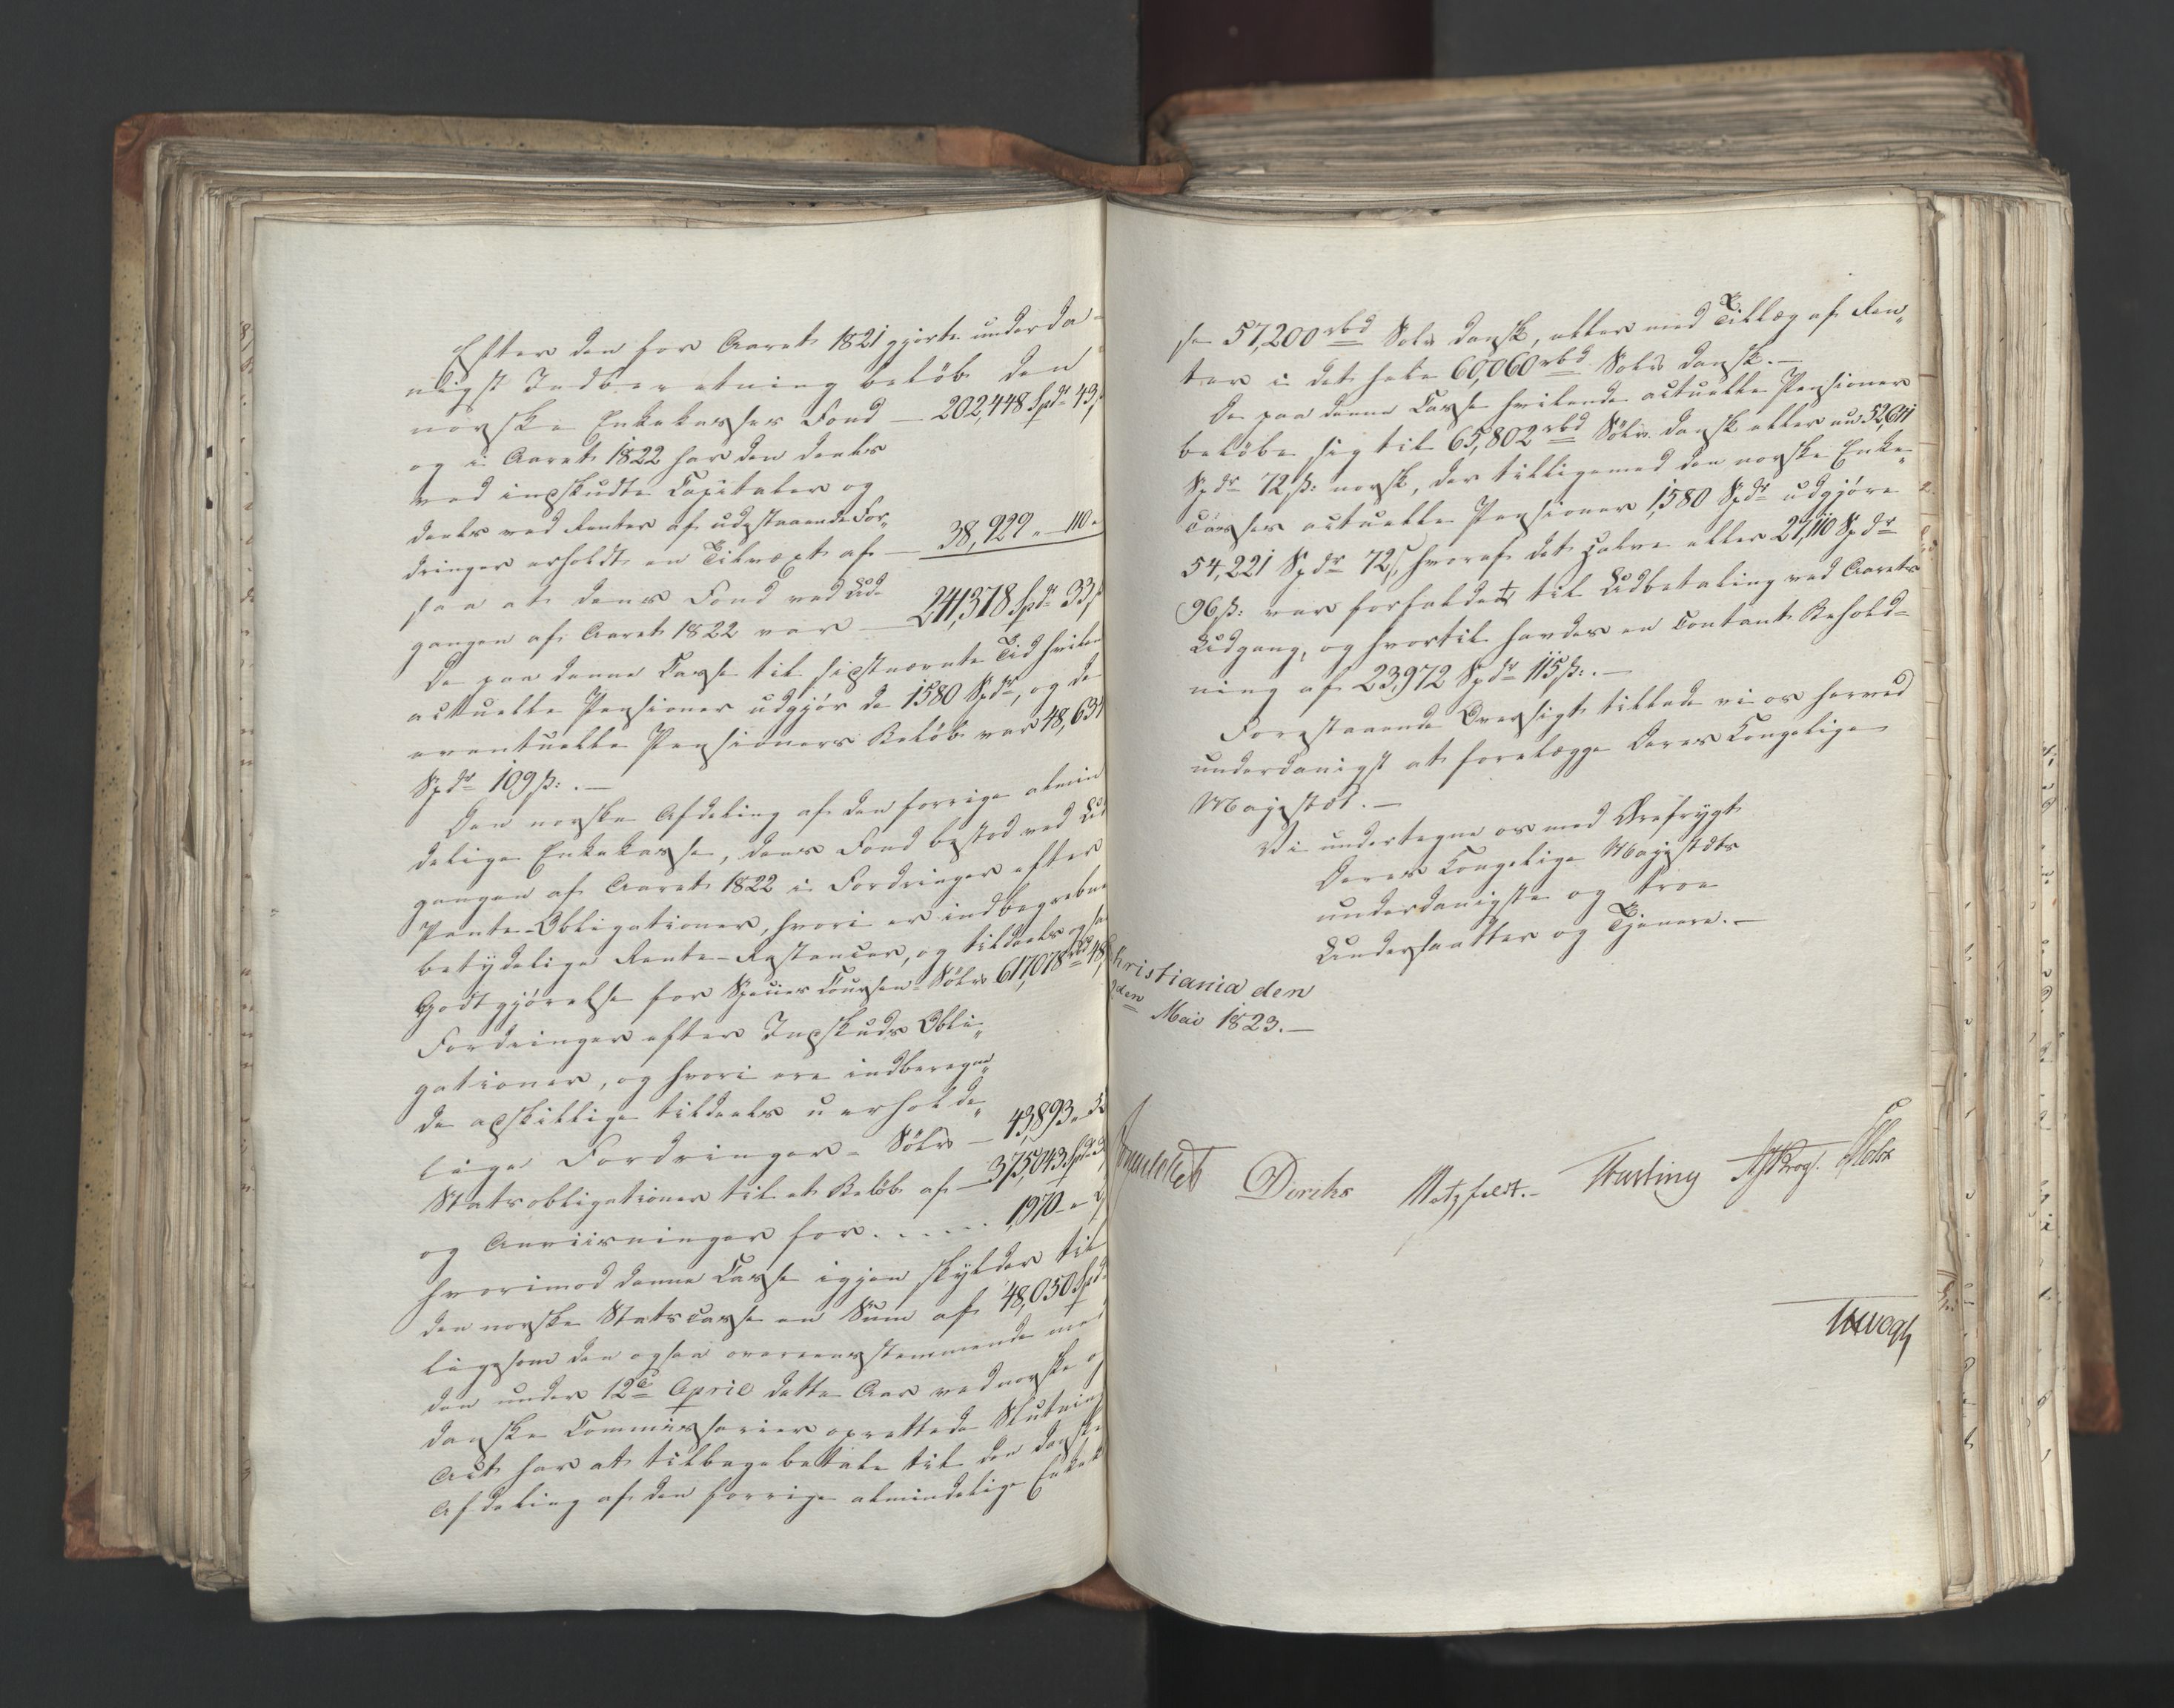 Efter den for Aaret 1821 gjorte underda-
nigst Indberetning beløb den
norske Enkekasses Fond — 202,448 Spdr 43
og i Aaret 1822 har den deels
ved indskudte Capitaler og
deels ved Renter af udestaaende For„
dringer erholdt en Tilvæxt af — 38,929 „ 110 „
saa at dens Fond ved Ud-
gangen af Aaret 1822 var — 241,378 Spdr 33
De paa denne Casse til sidstnævnte Tid hvilen
actuelle Pensioner udgjorde 1580 Spdr, og de
eventuelle Pensioners Beløb var 48,634
Spdr 109 ß: . —
Den norske Afdeling af den forrige almin
delige Enkekasse, dens Fond bestod ved Ud
gangen af Aaret 1822 i Fordringer efter
Pante-Obligationer, hvori er indbegrebne
betydelige Rente-Restancer, og tildeels ogsaa
Godtgjørelse for Species Coursen - Sølv 617,078 rbd 48
Fordringer efter Indskuds Obli„
gationer, og hvori ere indberegne„
de adskillige tildeels uerholde„
lige Fordringer - Sølv — 43,893 „
Statsobligationer til et Beløb af — 375,043 Spdr
og Anviisninger for . . . . . 1,970 - „
hvorimod denne Casse igjen skylder til
den norske Statscasse en Sum af 48,050 Spd
ligesom den ogsaa overeensstemmende med
den under 12te April dette Aar ved norske og
danske Commissarier oprettede Slutning
Act har at tilbagebetale til den danske
Afdeling af den forrige almindelige Enkek
se 57,200 rbd Sølv dansk, eller med Tillæg af Ren„
ter i det hele 60,060 rbd Sølv dansk. —
De paa denne Casse hvilende actuelle Pensioner
beløbe sig til 65,802 rbd Sølv dansk eller nu 52,641
Spdr 72 ß: norsk, der tilligemed den norske Enke„
Casses actuelle Pensioner 1,580 Spdr udgjøre
54,221 Spdr 72 ß, hvoraf det halve eller 27,110 Spdr
96 ß: var forfaldet til Udbetaling ved Aarets
Udgang, og hvortil havdes en contant Behold-
ning af 23,972 Spdr 115 ß: . —
Forestaaende Oversigt tillade vi os herved
underdanigst at forelægge Deres Kongelige
Majestæt. —
Vi undertegne os med Ærefrygt
Deres Kongelige Majestæts
underdanigste og troe
Undersaatter og Tjenere. —
Christiania den
den Mai 1823. —
Sommerhielm Diriks Motzfeldt. — Krog Holst
Vogt